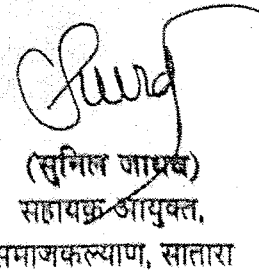 (सुनिल जाधव)
सहायक आयुक्त,
समाजकल्याण, सातारा